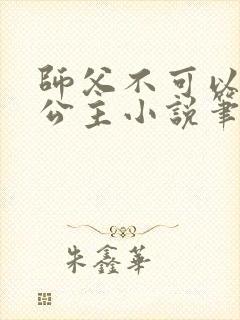 師父不可以
公主小說筆
朱鑫華